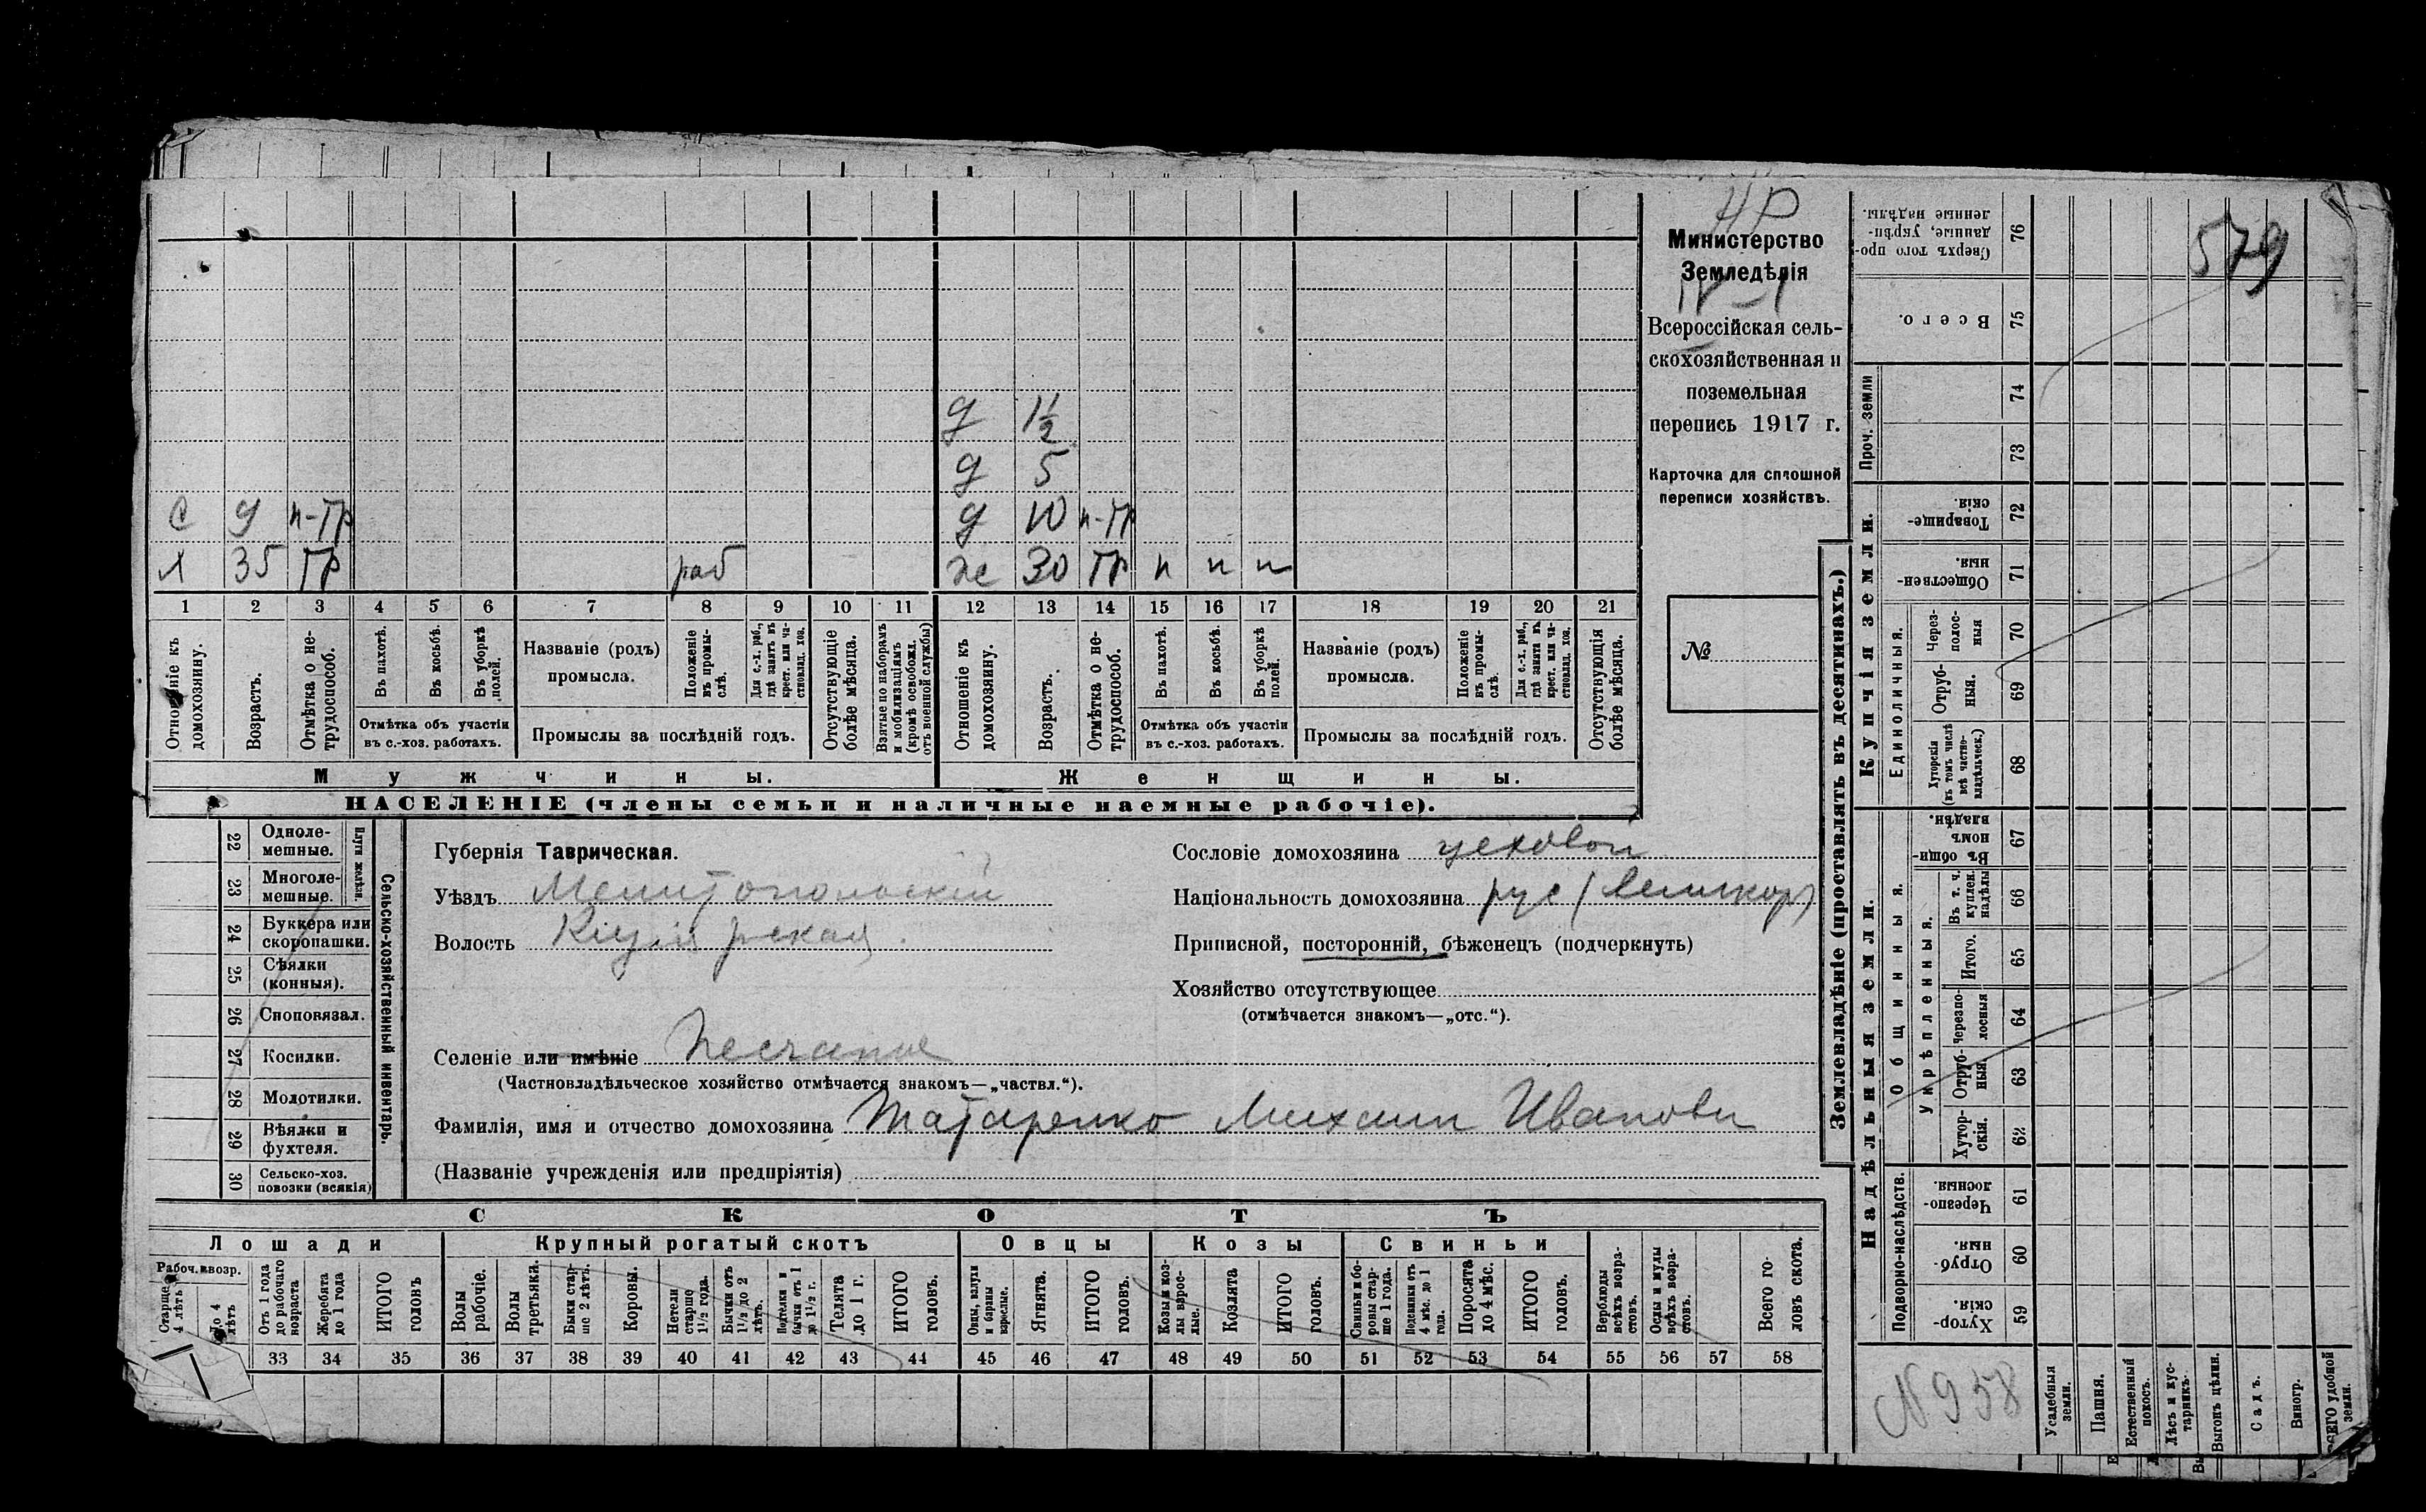 НР
Министерство
Земледѣлія
IV—1
Всероссійская сель-
скохозяйственная и
поземельная
перепись 1917 г.
Карточка для сплошной
переписи хозяйствъ.
№
579
д 1½
д 5
с 9 п-тр д 10 п-тр
х 35 тр раб ж 30 тр п п п
1 2 3 4 5 6 7 8 9 10 11 12 13 14 15 16 17 18 19 20 21
Отношеніе къ домохозяину.
Возрастъ.
Отмѣтка о не-трудоспособ.
Въ пахотѣ.
Въ косьбѣ.
Въ уборкѣ полей.
Отмѣтка объ участіи
въ с.-хоз. работахъ.
Названіе (родъ)
промысла.
Положеніе въ промы-слѣ.
Для с.-х. раб., гдѣ занятъ въ крест. или ча-стновлад. хоз.
Промыслы за послѣдній годъ.
Отсутствующіе болѣе мѣсяца.
Взятые по наборамъ и мобилизаціямъ (кромѣ освобожд. отъ военной службы)
Отношеніе къ домохозяину.
Возрастъ.
Отмѣтка о не-трудоспособ.
Въ пахотѣ.
Въ косьбѣ.
Въ уборкѣ полей.
Отмѣтка объ участіи
въ с.-хоз. работахъ.
Названіе (родъ)
промысла.
Положеніе въ промы-слѣ.
Для с.-х. раб., гдѣ занята въ крест. или ча-стновлад. хоз.
Промыслы за послѣдній годъ.
Отсутствующія болѣе мѣсяца.
Мужчины.
Женщины.
НАСЕЛЕНІЕ (члены семьи и наличные наемные рабочіе).
22 Одноле-мешные.
23 Многоле-мешные.
Плуги желѣзн.
24 Буккера или скоропашки.
25 Сѣялки (конныя).
26 Сноповязал.
27 Косилки.
28 Молотилки.
29 Вѣялки и фухтеля.
30 Сельско-хоз. повозки (всякія)
Сельско-хозяйственный инвентарь.
Губернія Таврическая.
Уѣздъ Мелитопольскій
Волость Кизіярская.
Сословіе домохозяина цеховой
Національность домохозяина рус (великор)
Приписной, посторонній, бѣженецъ (подчеркнуть)
Хозяйство отсутствующее
(отмѣчается знакомъ—„отс.“).
Селеніе или имѣніе Песчаное
(Частновладѣльческое хозяйство отмѣчается знакомъ—„частвл.“).
Фамилія, имя и отчество домохозяина Татаренко Михаил Иванови
(Названіе учрежденія или предпріятія)
СКОТЪ
Лошади
Крупный рогатый скотъ
Овцы
Козы
Свиньи
Рабоч. возр.
Старше 4 лѣтъ
До 4 лѣтъ
Отъ 1 года до рабочаго возраста
Жеребята до 1 года
ИТОГО головъ
Волы рабочіе.
Волы третьяки.
Быки стар-ше 2 лѣтъ.
Коровы.
Нетели старше 1½ года.
Бычки отъ 1½ до 2 лѣтъ.
Подтелки и бычки отъ 1 до 1½ г.
Телята до 1 г.
ИТОГО головъ.
Овцы, валухи и бараны взрослые.
Ягнята.
ИТОГО головъ.
Козы и коз-лы взрос-лые.
Козлята
ИТОГО головъ.
Свиньи и бо-ровы стар-ше 1 года.
Подсвинки отъ 4 мѣс. до 1 года
Поросята до 4 мѣс.
ИТОГО головъ.
Верблюды всѣхъ возра-стовъ.
Ослы и мулы всѣхъ возра-стовъ.
Всего го-ловъ скота.
33 34 35 36 37 38 39 40 41 42 43 44 45 46 47 48 49 50 51 52 53 54 55 56 57 58
Землевладѣніе (проставлять въ десятинахъ.)
Сверхъ того про-данные, укрѣп-ленные надѣлы. 76
Всего. 75
Проч. земли
74
73
Купчія земли.
Товарище-скія. 72
Обществен-ныя. 71
Единоличныя.
Через-полос-ныя 70
Отруб-ныя. 69
Хуторскія (въ томъ числѣ всѣ частно-владѣльческ.) 68
Надѣльныя земли.
Общинныя.
Въ общин-номъ владѣн. 67
Укрѣпленныя.
Въ т. ч. куплен. надѣлы 66
Итого. 65
Черезпо-лосныя 64
Отруб-ныя 63
Хутор-скія. 62
Подворно-наслѣдств.
Черезпо-лосныя. 61
Отруб-ныя. 60
Хутор-скія. 59
N 958
Усадебныя земли.
Пашня.
Естественный покосъ.
Лѣсъ и кус-тарникъ.
Выгонъ цѣлин.
Садъ.
Виногр.
ВСЕГО удобной земли.